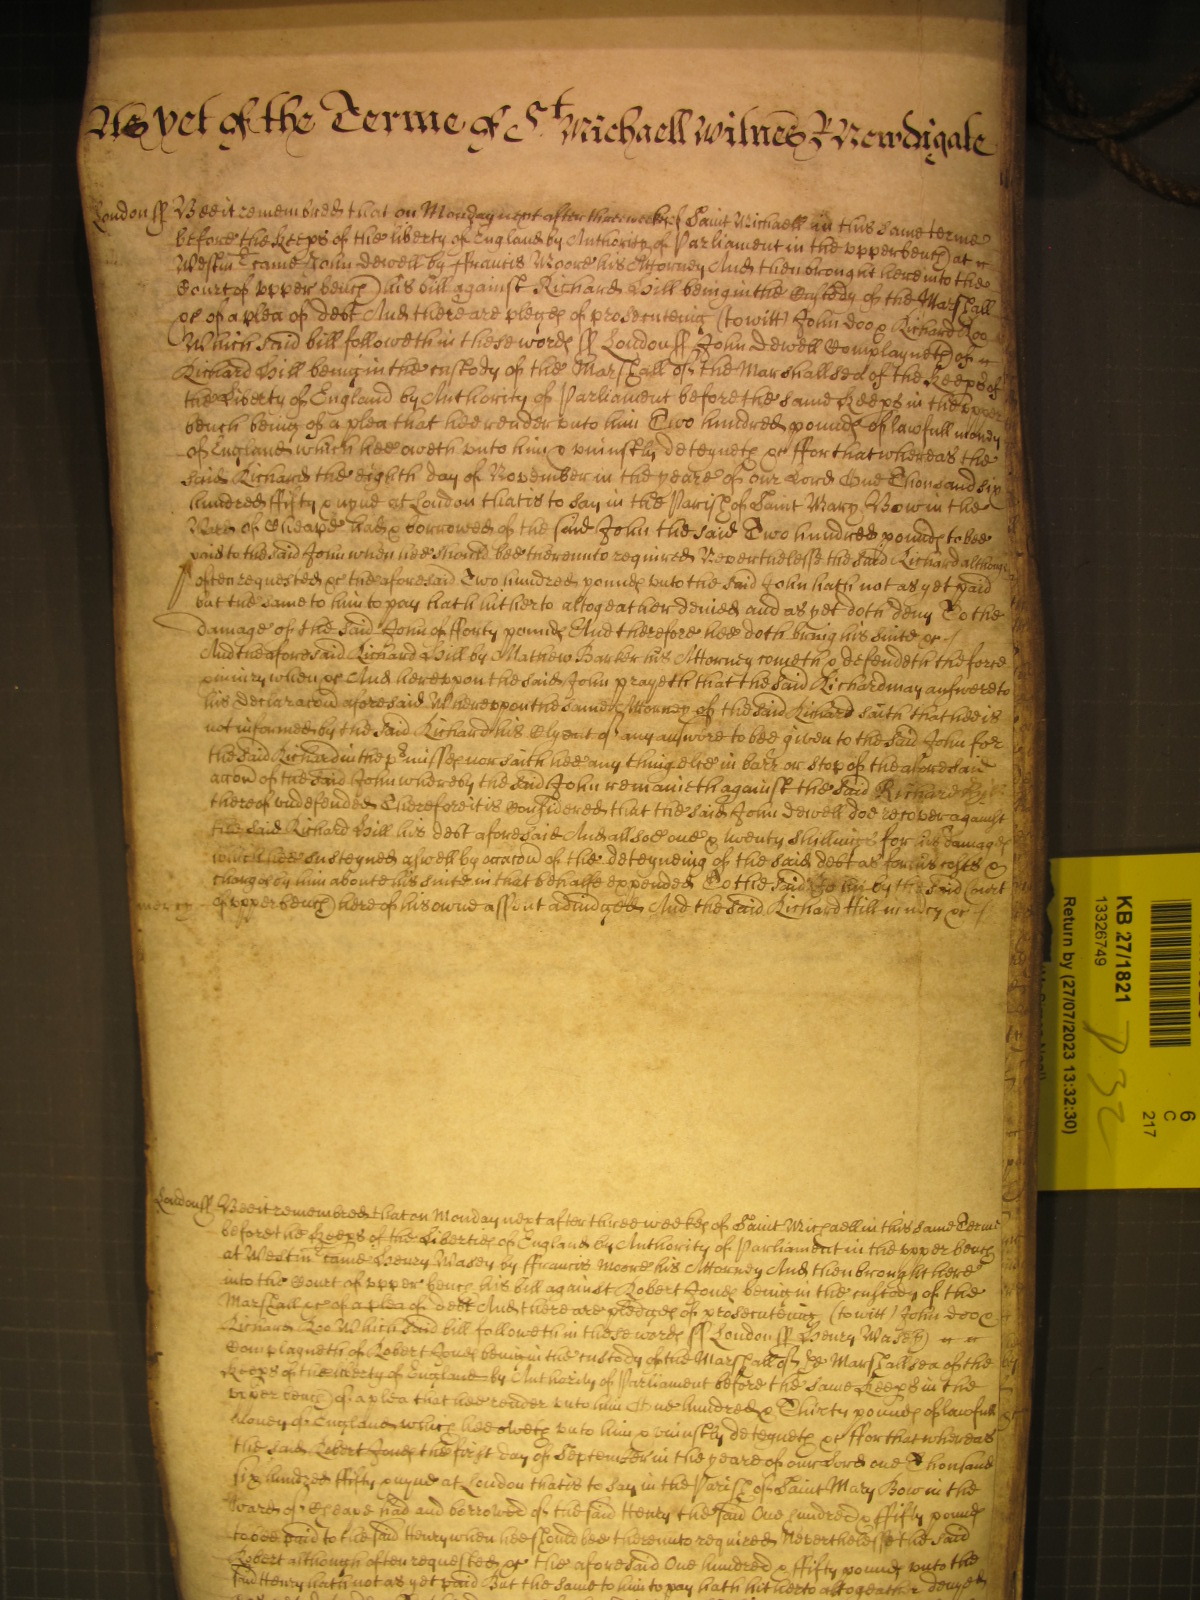 As yet of the Terme of St Michaell Witnes R Newdigate
London ss Bee it remembred that on Monday next after three weekes of Saint Michaell in this same terme
before the keeps of the liberty of England by Authority of Parliament in the upper bench at
Westmr came John Dewell by Francis Moore his Attorney And then brought here into the
Court of upper bench his bill against Richard Hill being in the Custody of the Marshall
&c of a plea of debt And there are pledges of prosecuteing (to witt) John Doo & Richard Roo
Which said bill followeth in these words ss London ss John Dewell Complayneth of
Richard Hill being in the custody of the Marshall of the Marshallsea of the keeps of
the Liberty of England by Authority of Parliament before the same keeps in the upper
bench being of a plea that hee render unto him Two hundred pounds of lawfull money
of England which hee oweth unto him & uniustly deteyneth &c ffor that whereas the
said Richard the eighth day of November in the yeare of our Lord One Thousand six
hundred ffifty & nyne at London that is to say in the Parish of Saint Mary Bow in the
Ward of Cheape had & borrowed of the said John the said Two hundred pounds to bee
paid to the said John when hee should bee thereunto required Neverthelesse the said Richard although
often requested &c the aforesaid Two hundred pounds unto the said John hath not as yet paid
but the same to him to pay hath hitherto altogeather denied and as yet doth deny To the
damage of the said John of fforty pounds And therefore hee doth bring his suite &c
And the aforesaid Richard Hill by Mathew Barker his Attorney cometh & defendeth the force
& iniury when &c And hereupon the said John prayeth that the said Richard may answere to
his declaracon aforesaid Whereuppon the same Attorney of the said Richard saith that hee is
not informed by the said Richard his Clyent of any answere to bee given to the said John for
the said Richard in the pmisses nor saith hee any thing else in barr or stop of the aforesaid
accon of the said John whereby the said John remaineth against the said Richard
thereof undefended Therefore it is considered that the said John Dewell doe recover against
the said Richard Hill his debt aforesaid And allsoe one & twenty shillings for his damages
which hee susteyned aswell by occacon of the deteyneing of the said debt as for his costs &
charges by him about his suite in that behalfe expended To the said John by the said Court
mercy of upper bench here of his owne assent adiudged And the said Richard Hill in mcy &c
London ss Bee it remembred that on Monday next after three weekes of Saint Michaell in this same Terme
before the keeps of the Liberties of England by Authority of Parliament in the upper bench
at Westmr came Henry Wasey by ffrancis Moore his Attorney And then brought here
into the Court of upper bench his bill against Robert Jones being in the custody of the
Marshall &c of a plea of debt And there are pledges of prosecuteing (to witt) John Doo &
Richard Roo Which said bill followeth in these words ss London ss Henry Wasey
Complayneth of Robert Jones being in the custody of the Marshall of ye Marshallsea of the
keeps of the liberty of England by Authority of Parliament before the same keeps in the
upper bench of a plea that hee render unto him One hundred & Thirty pounds of lawfull
Money of England which hee oweth unto him & uniustly deteyneth &c ffor that whereas
the said Robert Jones the first day of September in the yeare of our Lord one Thousand
six hundred ffifty & nyne at London that is to say in the Parish of Saint Mary Bow in the
Ward of Cheape had and borrowed of the said Henry the said One hundred & ffifty pounds
to bee paid to the said Henry when hee should bee thereunto required Neverthelesse the said
Robert although often requested &c the aforesaid One hundred & ffifty pounds unto the
said Henry hath not as yet paid But the same to him to pay hath hitherto altogeather denyed
KB 27/1821
13326749
Return by (27/07/2023 13:32:30)
P 32
6
C
217